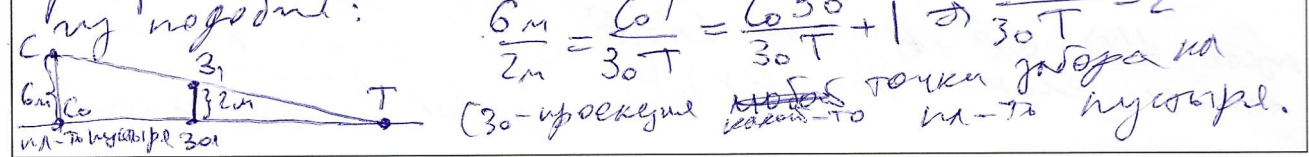 из подобия:
6м/2м = C₀T/З₀T = C₀З₀/З₀T + 1 ⇒ /З₀T = 2
C
З₁
6м
C₀
}2м
T
пл-ть пустыря
З₀
(З₀-проекция какой-то точки забора на
пл-ть пустыря.